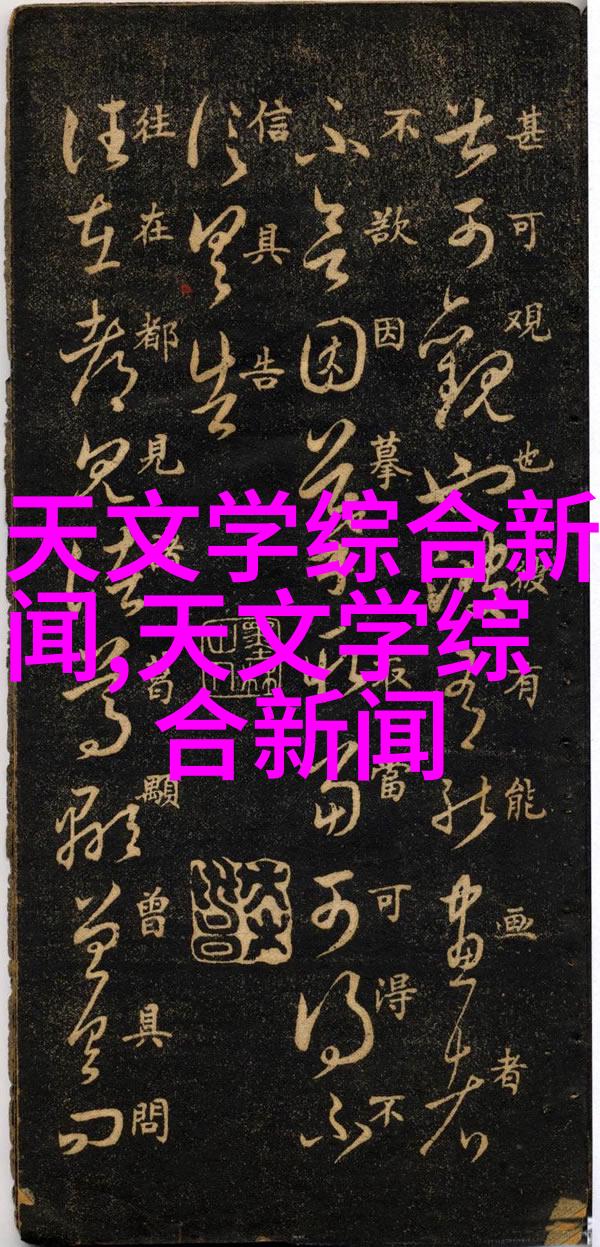 天文学综合新
闻,天文学综
合新闻
甚可观也彼有能画者
不欲因摹取當可得不
信具告
往在都見諸葛顯曾具問